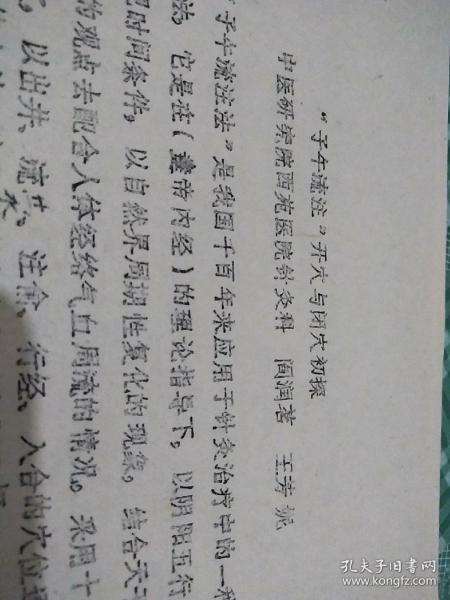 “子午流注”开穴与闭穴初探
中医研究院西苑医院针灸科 阎润茗 王芳妮
“子午流注法”是我国千百年来应用于针灸治疗中的一种
法，它是在(黄帝内经)的理论指导下，以阴阳五行
时间条件，以自然界周期性复化的现象，结合天干
的观点去配合人体经络气血周流的情况。采用十
，以出井、流荥、注俞、行经、入合的穴位
孔夫子旧书网
www.kongfz.com